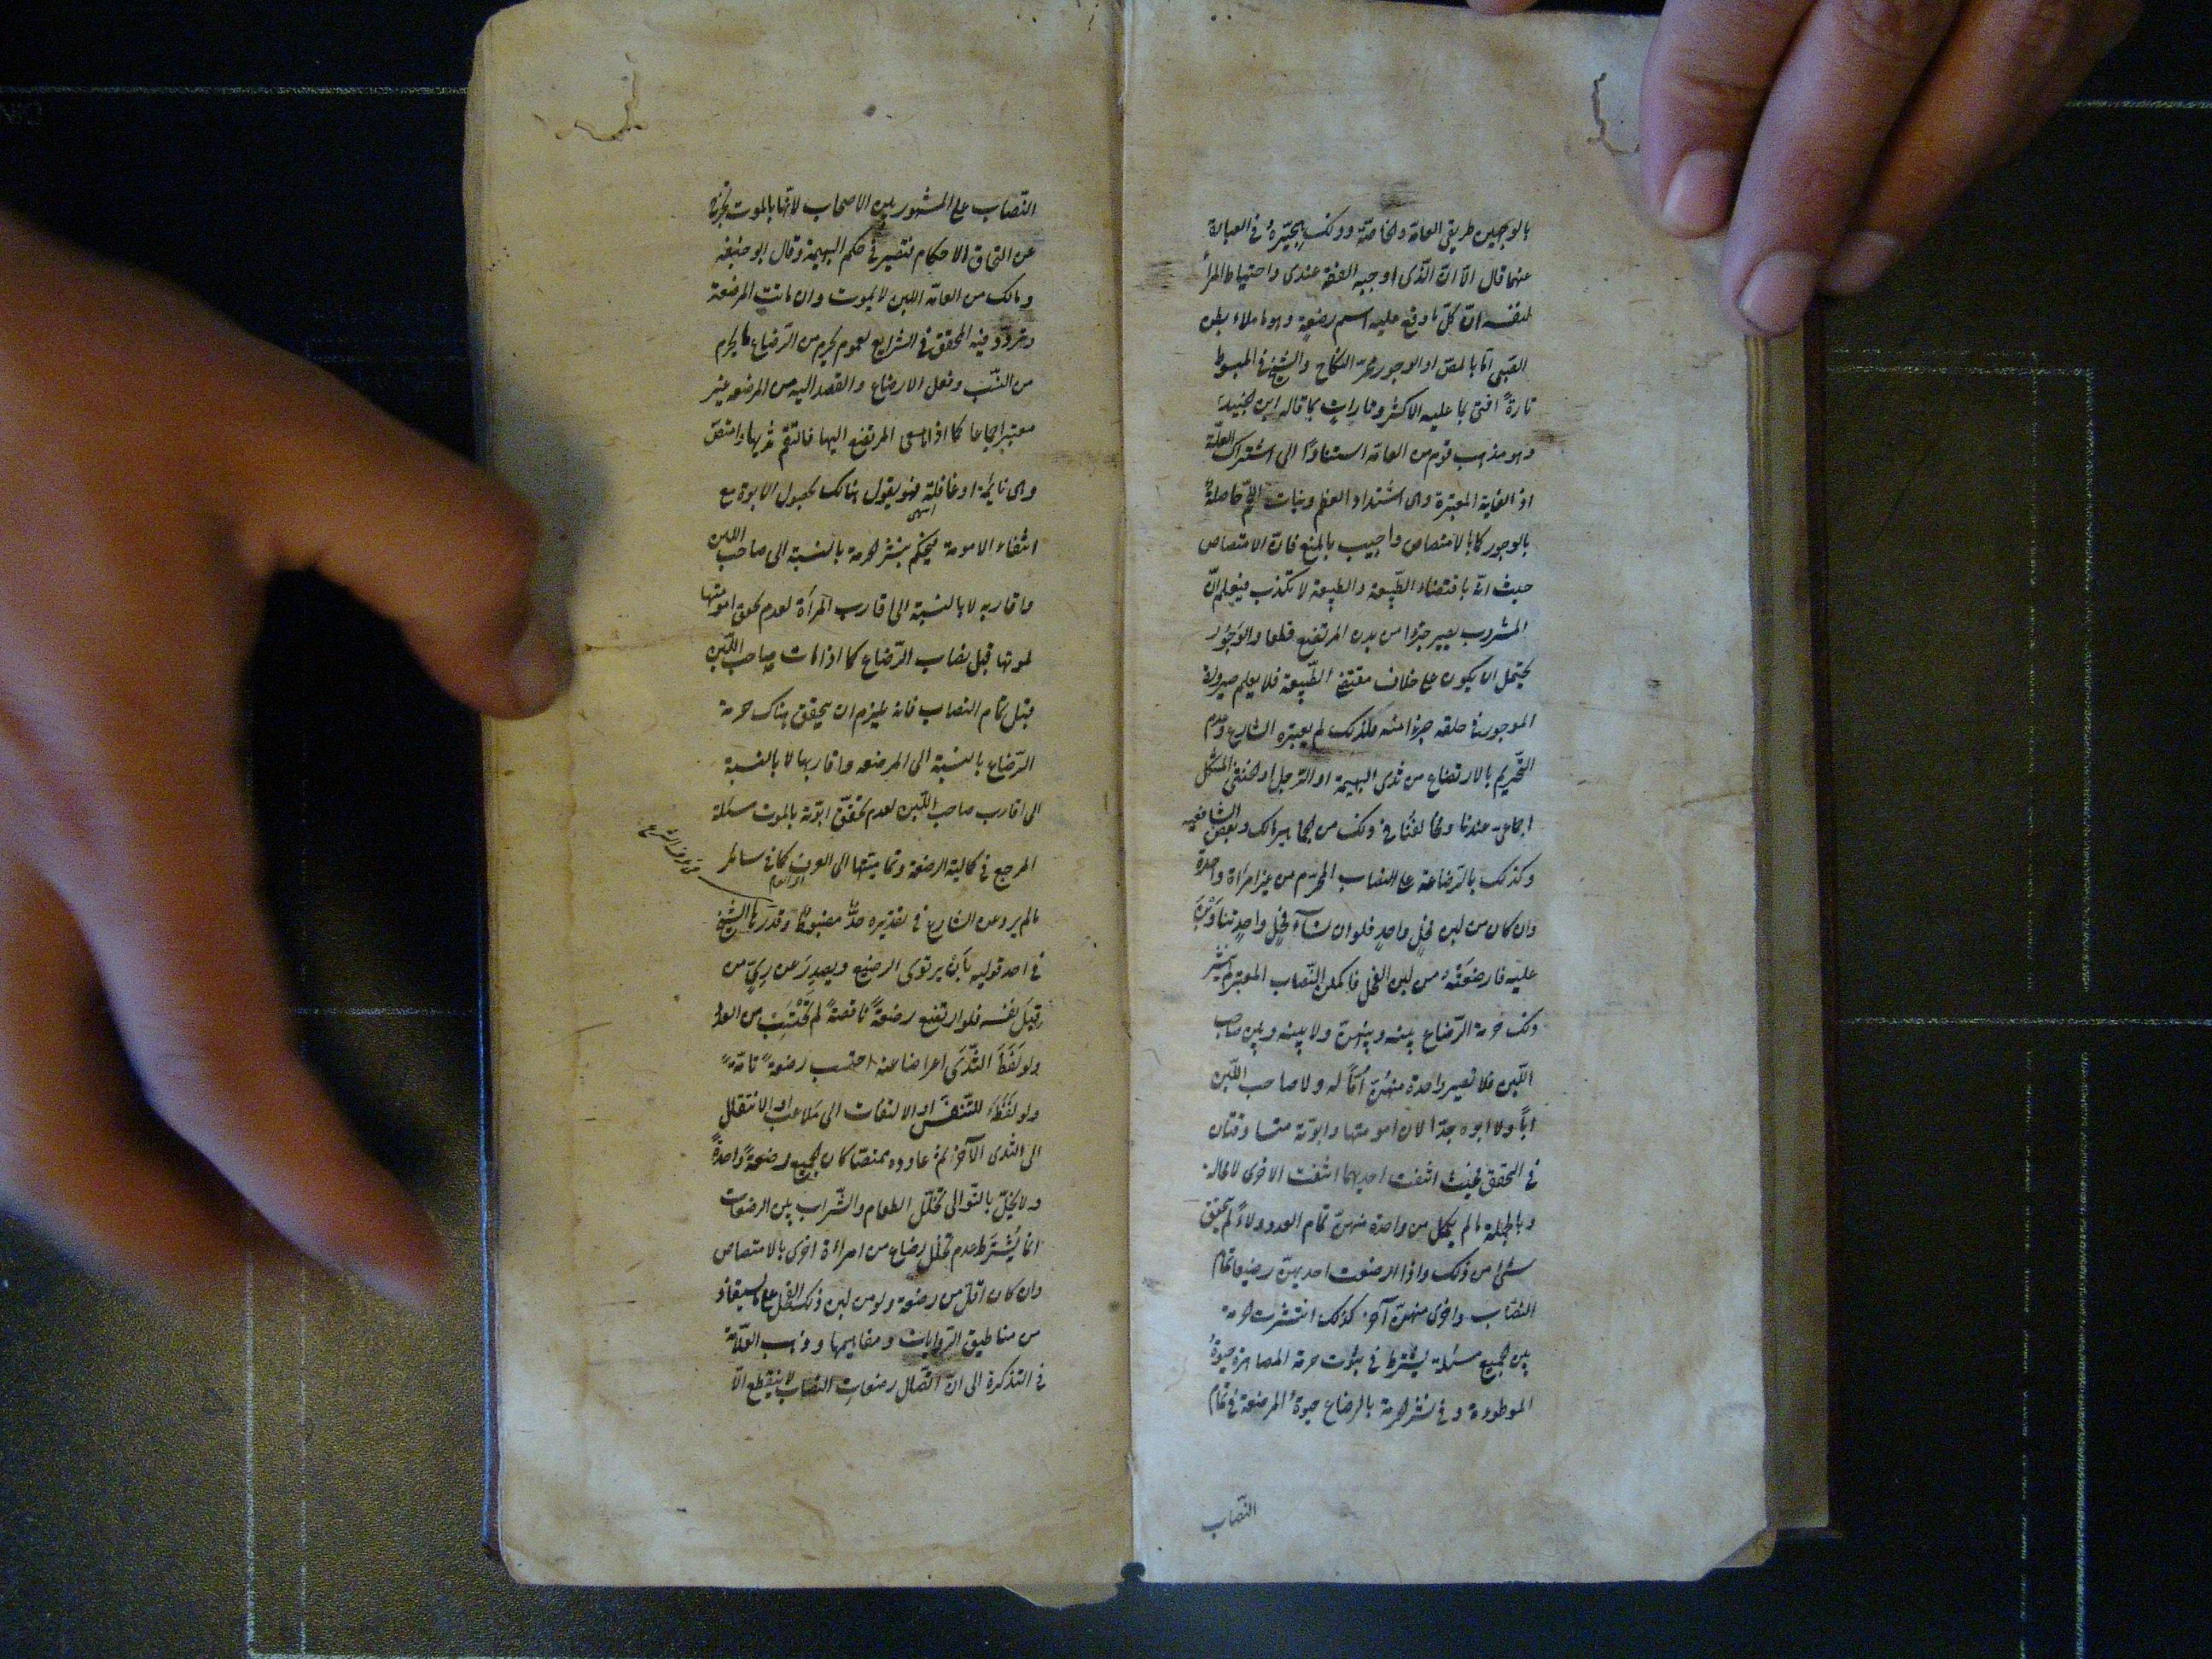 بالوجهين طريقي العامة والخاصة وذلك في العبارة
عنهما قال الا ان الذي اوجبه الفقه عندي واحتياط المرأ
لنفسه ان كل ما وقع عليه اسم رضعة وهو ما ملاء بطن
الصبي اما بالمص او الوجور محرم النكاح والشيخ في المبسوط
تارةً افتى بما عليه الاكثر وتارات بما قاله ابن الجنيد
وهو مذهب قوم من العامة استنادًا الى اشتراك العلة
اذ الغاية المعتبرة وهى اشتداد العظم ونبات اللحم حاصلةً
بالوجور كما بالامتصاص واجيب بالمنع فان الامتصاص
حيث انه باقتضاء الطبيعة والطبيعة لا تكذب فيعلم انّ
المشروب يصير جزءا من بدن المرتضع قطعا والوَجُور
يحتمل ان يكون على خلاف مقتضى الطبيعة فلا يعلم صيرورة
الموجور في حلقه جزءا منه فلذلك لم يعتبره الشارع وعدم
التحريم بالارتضاع من ثدى البهيمة او الرجل او الخنثى المشكل
اجماعى عندنا ومخالفنا في ذلك من الجماهير مالك وبعض الشافعية
وكذلك بالرضاعة على النصاب المحرم من غير امرأة واحدة
وان كان من لبن فحلٍ واحدٍ فلو ان نسآء فحلٍ واحدٍ تناوَبْنَ
عليه فارضعنَهُ من لبن الفحل فاكملن النّصاب المعتبر لم ينشر
ذلك حرمة الرّضاع بينه وبينهنّ ولا بينه وبين صاحب
اللّبن فلا تصير واحدة منهنّ اُمّاً له ولا صاحب اللّبن
اباً ولا ابوه جدّا لان امومتها وابوّته متساوقتان
في التحقق فحيث انتفت احديهما انتفت الاخرى لامحالة
وبالجملة ما لم يكمل من واحدة منهنّ تمام العدد ولاءً لم يتحقق
شئ من ذلك واذا ارضعت احديهنّ رضيعا تمام
النصاب واخرى منهنّ آخر كذلك انتشرت الحرمة
بين الجميع مسئلة يشترط في ثبوت حرمة المصاهرة حيوةُ
الموطوءة وفي نشر الحرمة بالرضاع حيوةُ المرضعة في تمام
النّصاب
النصاب على المشهور بين الاصحاب لانها بالموت تخرج
عن التحاق الاحكام فتصير في حكم البهيمة وقال ابو حنيفة
ومالك من العامّة اللبن لا يموت وان ماتت المرضعة
وتردّد فيه المحقق في الشرايع لعموم يحرم من الرّضاع ما يحرم
من النّسب وفعل الارضاع والقصد اليه من المرضعه غير
معتبر اجماعا كما اذا سعى المرتضع اليها فالتقم ثديها وامتصّ
وهى نائمة او غافلة فهو يقول هناك بحصول الابوة مع
انتفاء الامومة فيحكم بنشر الحرمة بالنسبة الى صاحب اللبن
واقاربه لا بالنسبة الى اقارب المرأة لعدم تحقق امومتها
لموتها قبل نصاب الرّضاع كما اذا مات صاحب اللّبن
قبل تمام النصاب فانه يلزم ان يتحقق هناك حرمة
الرّضاع بالنسبة الى المرضعه واقاربها لا بالنسبة
الى اقارب صاحب اللّبن لعدم تحقّق ابوّته بالموت مسئلة
المرجع في كمالية الرضعة وتماميتها الى العرف كما في ساير
ما لم يرد عن الشارع في تقديره حدٌّ مضبوط وقدرها الشيخ
في احد قوليه بأَن يرتوى الرضيع ويصدِرَ عن رِيٍّ من
قِبَل نفسه فلو ارتضع رضعةً ناقصةً لم تُحْتَسَبْ من العدد
ولو لَفَظَ الثّدْىَ اعراضا عنه احتسب رضعةً تامّةً
ولو لفَظَهُ للتّنفّس او الالتفات الى مَلاعب او الانتقال
الى الثدى الآخر ثم عاوده ممتصّا كان الجميع رضعةً واحدةً
ولا يخلّ بالتّوالى تخلّل الطعام والشّراب بين الرضعات
انما يُشترَط عدم تخلّل رضاع من امراءة اخرى بالامتصاص
وان كان اقلّ من رضعة ولو من لبن ذلك الفحل على ما يستفاد
من مناطيق الرّوايات ومفاهيمها وذهب العلّامة
في التذكرة الى انّ اتّصال رضعات النصاب لا ينقطع الّا